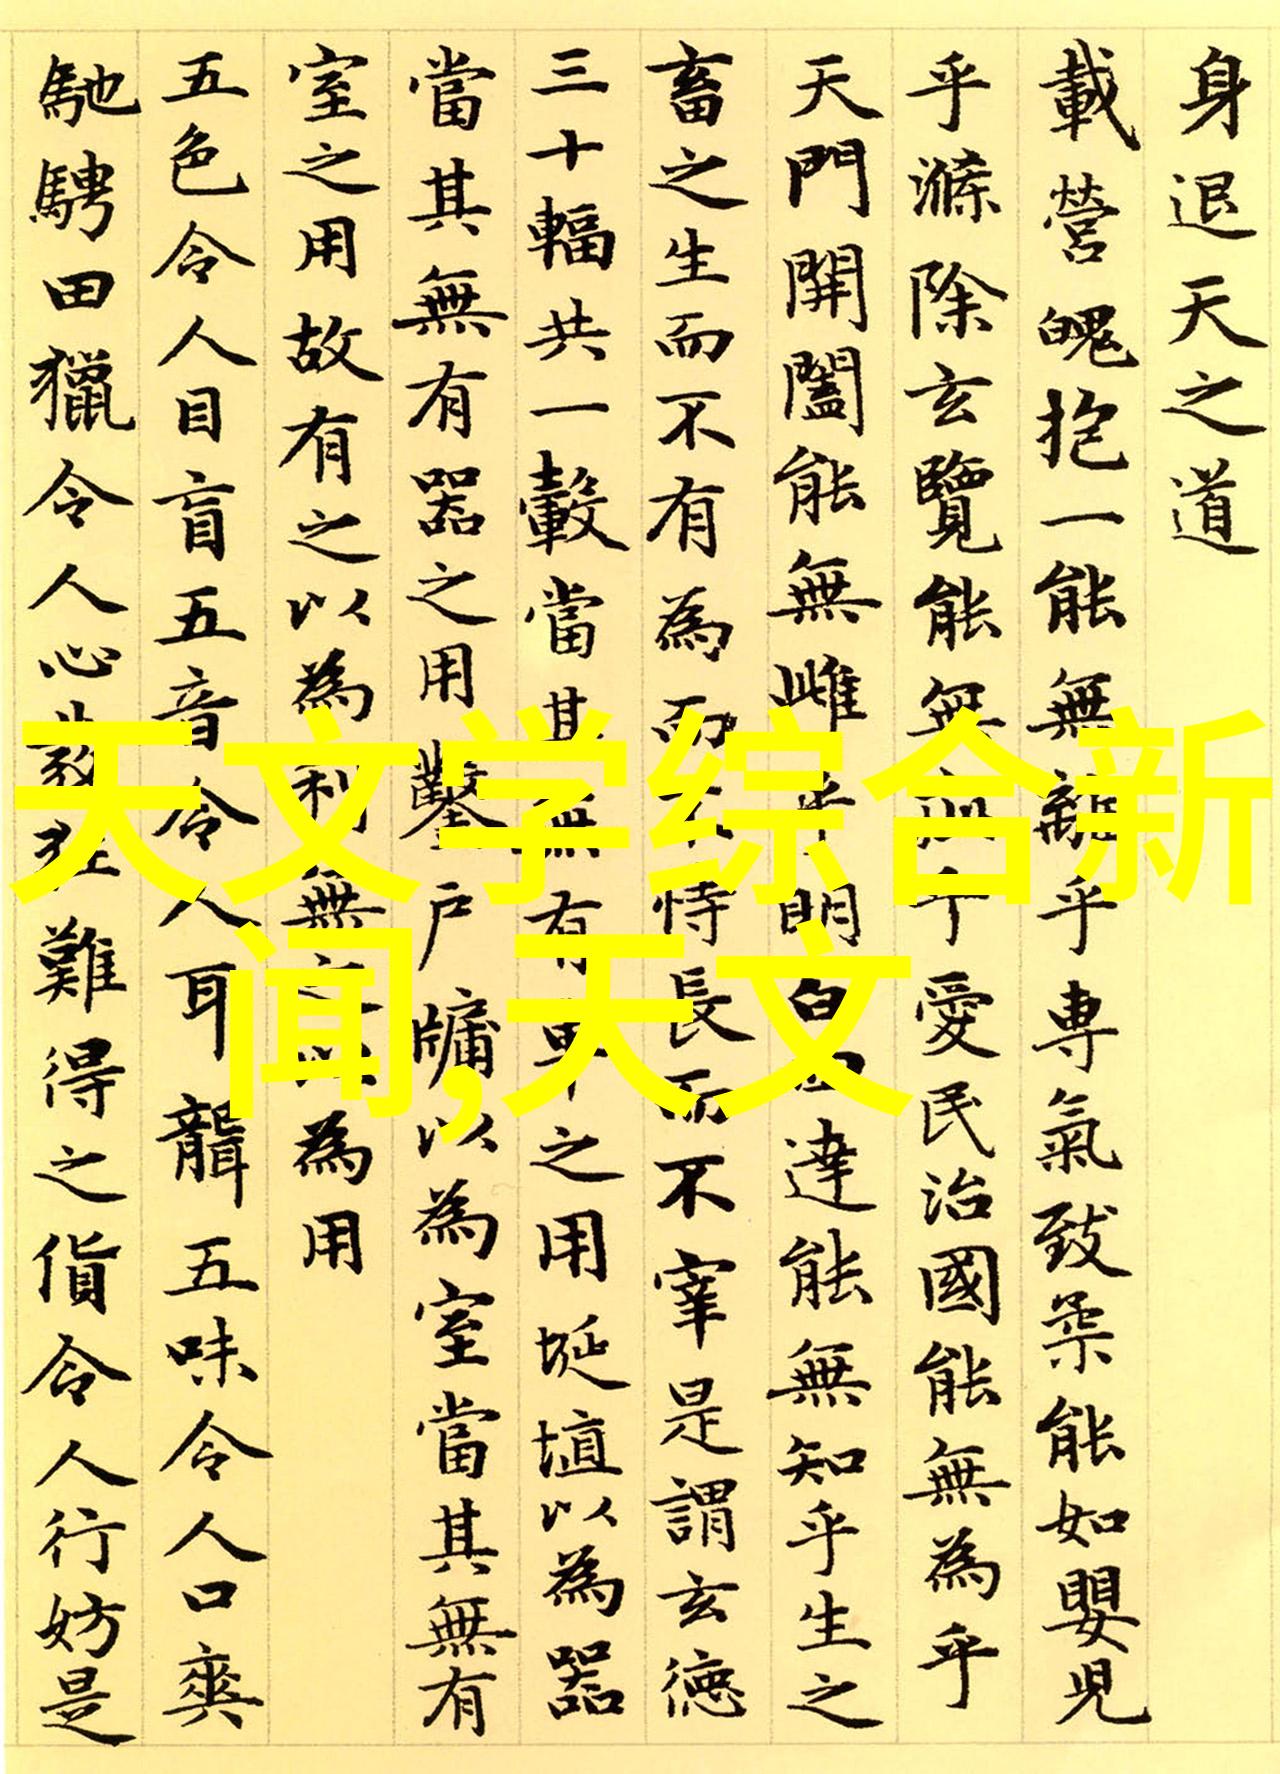 身退天之道
載營魄抱一能無離乎専氣致柔能如嬰児
乎滌除玄覽能無疵乎愛民治國能無為乎
天門開闔能無雌乎明白四達能無知乎生之
畜之生而不有為而不恃長而不宰是謂玄德
三十輻共一轂當其無有車之用埏埴以為器
當其無有器之用鑿戶牖以為室當其無有
室之用故有之以為利無之以為用
五色令人目盲五音令人耳聾五味令人口爽
馳騁田獵令人心發狂難得之貨令人行妨是
天文学综合新
闻,天文